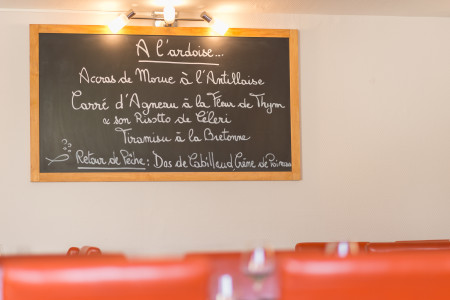 A l'ardoise...
Accras de Morue à l'Antillaise
Carré d'Agneau à la Fleur de Thym
& son Risotto de Céleri
Tiramisu à la Bretonne
Retour de Pêche : Dos de Cabillaud, Crème de Poireaux